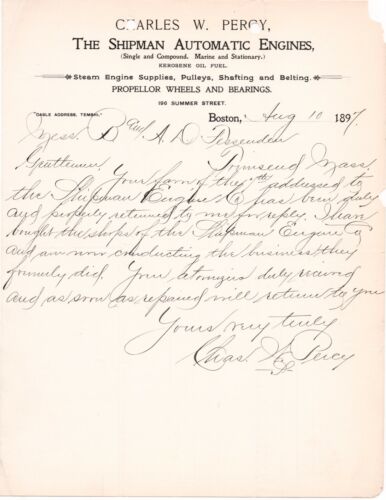 CHARLES W. PERCY,
THE SHIPMAN AUTOMATIC ENGINES,
(Single and Compound. Marine and Stationary.)
KEROSENE OIL FUEL.
Steam Engine Supplies, Pulleys, Shafting and Belting.
PROPELLOR WHEELS AND BEARINGS.
190 SUMMER STREET.
"CABLE ADDRESS, TEMBAL."
Boston, Aug 10 1897.
Mess. B and A. D. Fessenden
Townsend Mass.
Gentlemen, Your favor of the 7th addressed to
the Shipman Engine Co has been duly
and properly returned to me for reply. I have
bought the shops of the Shipman Engine Co
and am now conducting the business they
formerly did. Your atomizers duly received
and as soon as repaired will return to you
Yours very truly
Chas. W. Percy